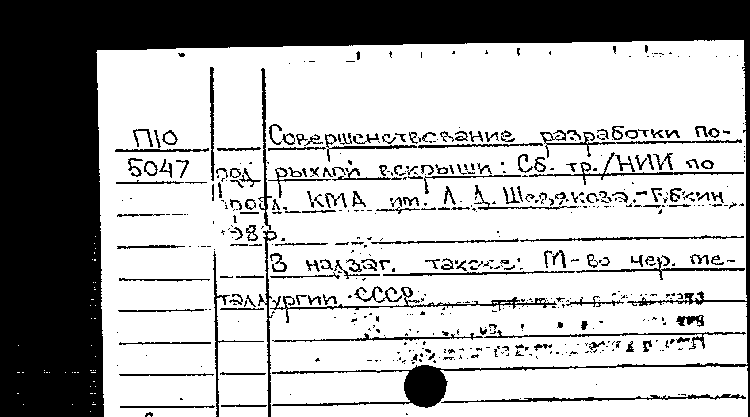 П/О
5047
Совершенствование разработки по-
род рыхлой вскрыши: Сб. тр./НИИ по
пробл. КМА им. Л. Д. Шевякова.-Губкин,
В надзаг. также: М-во чер. ме-
таллургии СССР